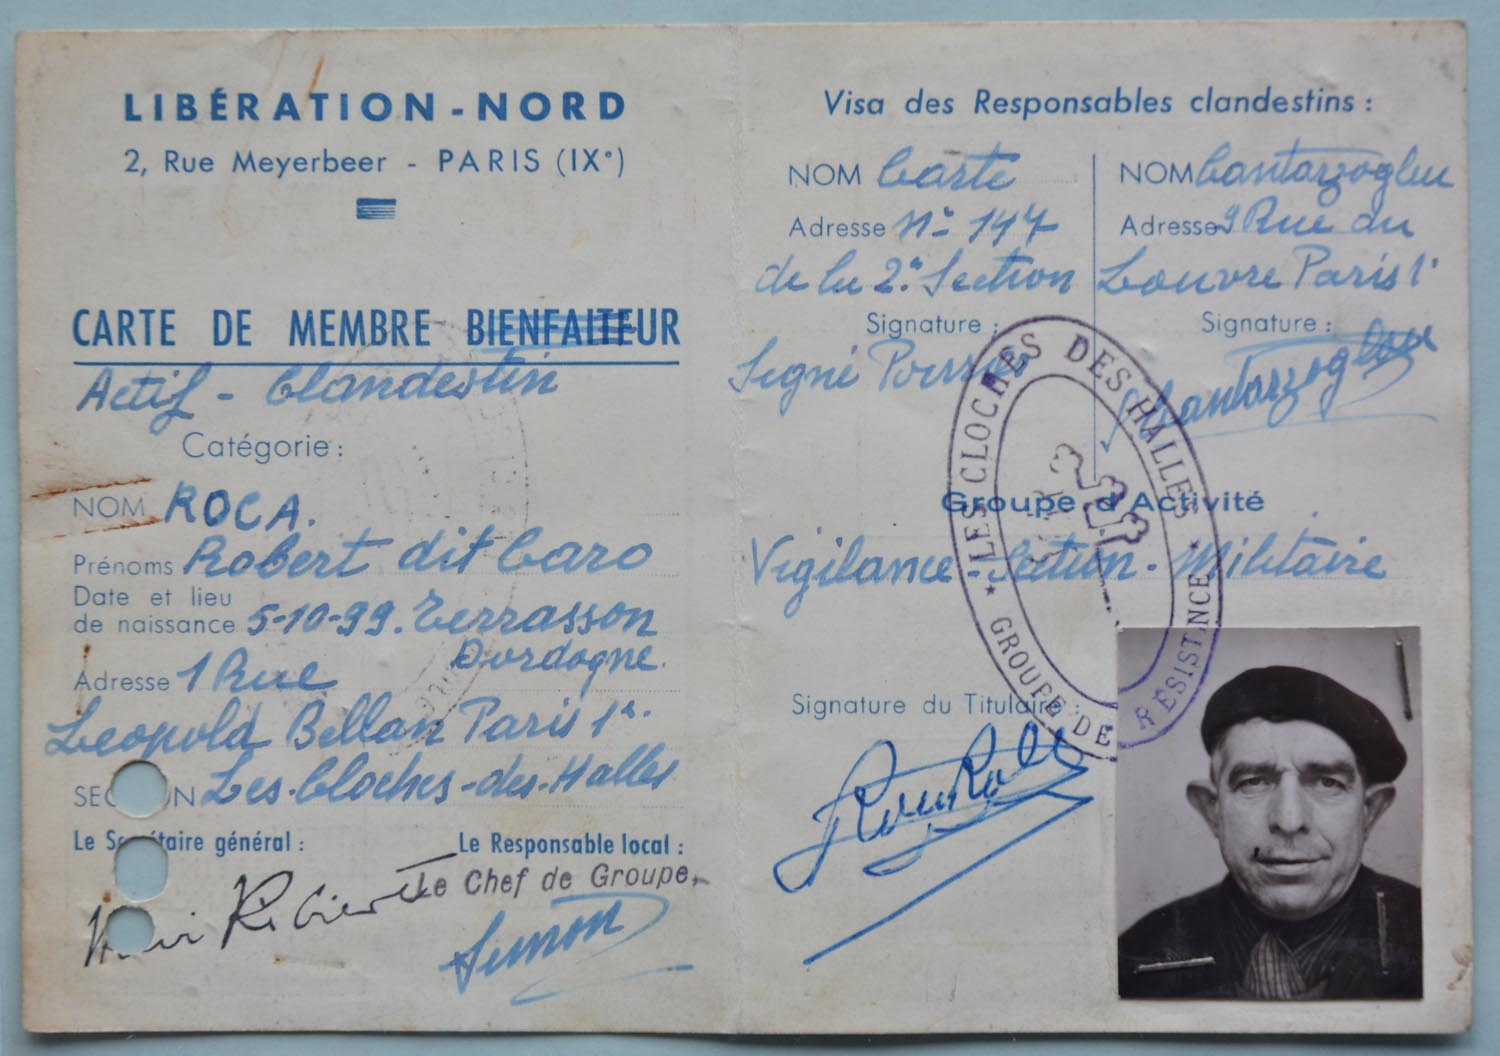 LIBÉRATION-NORD
2, Rue Meyerbeer - PARIS (IXe)
CARTE DE MEMBRE BIENFAITEUR
Actif - Clandestin
Catégorie :
NOM ROCA.
Prénoms Robert dit Caro
Date et lieu
de naissance 5-10-99. Terrasson
Dordogne.
Adresse 1 Rue
Leopold Bellan Paris 1er.
SECTION Les-Cloches-des-Halles
Le Secrétaire général :
Le Responsable local :
Le Chef de Groupe,
Simon
Visa des Responsables clandestins :
NOM Carte
Adresse N° 147
de la 2e Section
Signature :
Signé
NOM Cantarzoglou
Adresse 9 Rue du
Louvre Paris 1er
Signature :
Cantarzoglou
Groupe d'Activité
Vigilance - Section - Militaire
Signature du Titulaire :
★ LES CLOCHES DES HALLES ★ GROUPE DE RESISTANCE